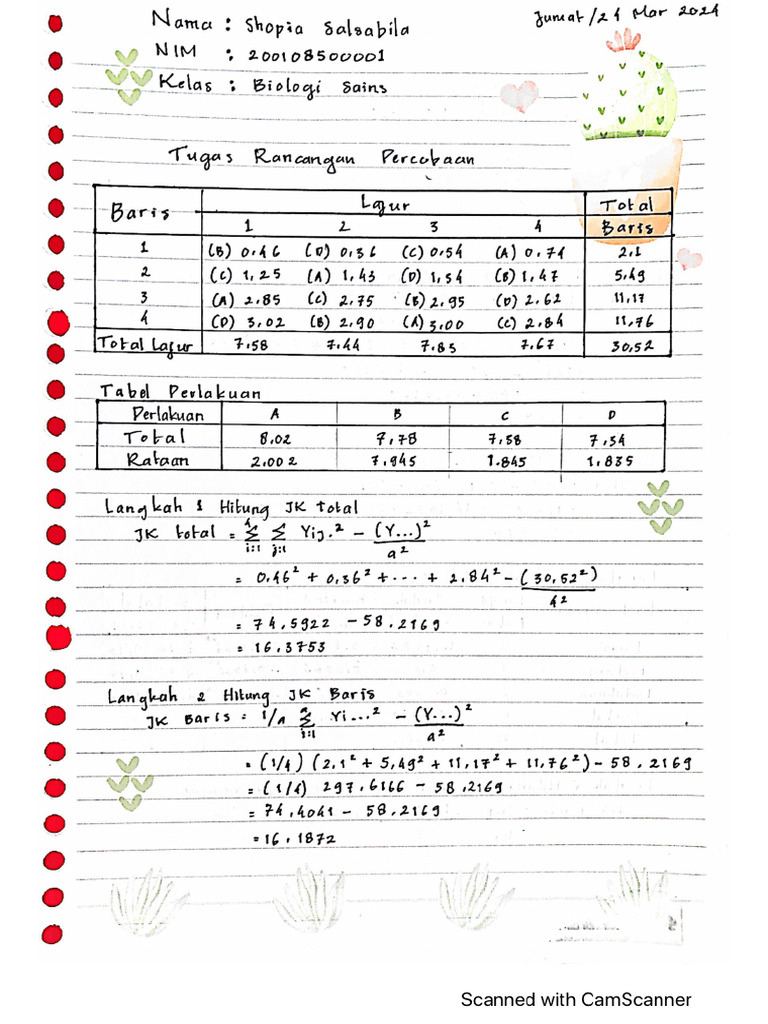 Nama : Shopia Salsabila
Jumat/24 Mar 2024
NIM : 200108500001
Kelas : Biologi Sains
Tugas Rancangan Percobaan
Baris Lajur Total Baris
1 2 3 4
1 (B) 0.46 (D) 0.36 (C) 0.54 (A) 0.74 2.1
2 (C) 1,25 (A) 1,43 (D) 1,54 (B) 1,47 5.49
3 (A) 2.85 (C) 2.75 (B) 2.95 (D) 2.62 11,17
4 (D) 3.02 (B) 2.90 (A) 3.00 (C) 2.84 11,76
Total Lajur 7.58 7.44 7.83 7.67 30,52
Tabel Perlakuan
Perlakuan A B C D
Total 8.02 7,78 7,58 7,54
Rataan 2.002 7,945 1.845 1,835
Langkah 1 Hitung JK Total
JK total = 4 Σ i=1 Σ j=1 Yij.² - (Y...)² / a²
= 0,46² + 0,36² + ... + 2,84² - (30,52²) / 4²
= 74,5922 - 58.2169
= 16.3753
Langkah 2 Hitung JK Baris
JK Baris = 1/a a Σ i=1 Yi...² - (Y...)² / a²
= (1/4) (2,1² + 5,49² + 11,17² + 11,76²) - 58.2169
= (1/4) 297,6166 - 58,2169
= 74,4041 - 58.2169
= 16,1872
Scanned with CamScanner